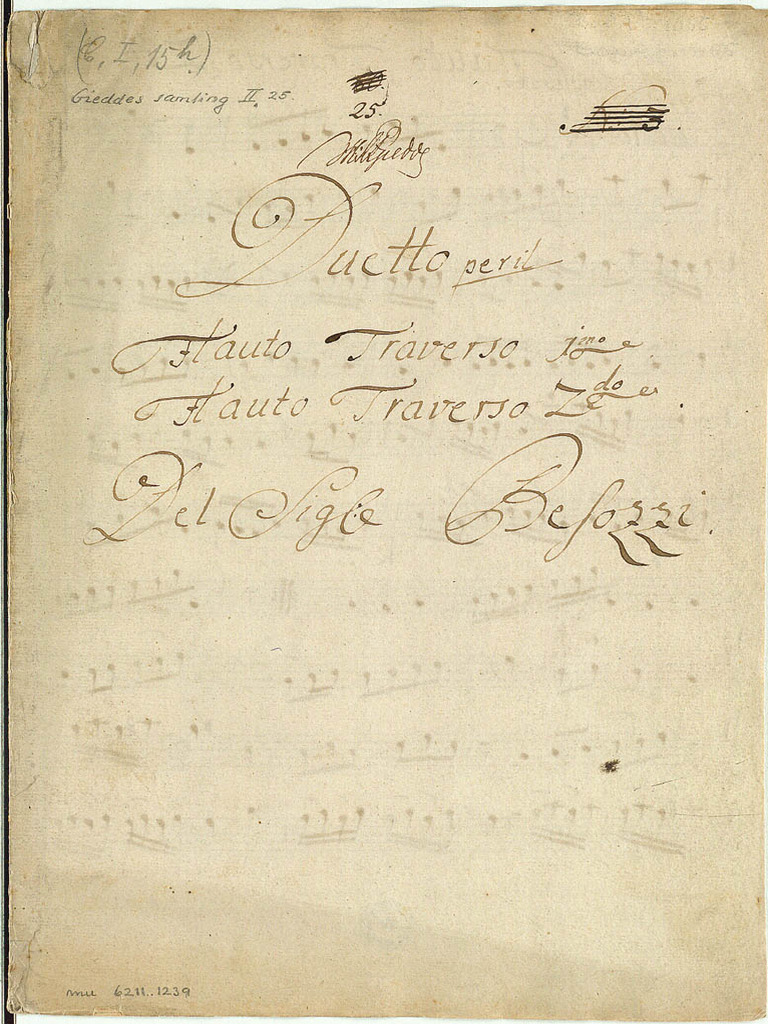 (C, I, 15h.)
Gieddes samling II, 25.
25.
WHRGiedde
Duetto per il
Flauto Traverso 1mo e
Flauto Traverso 2do
Del Sigle Besozzi.
mu 6211.1239